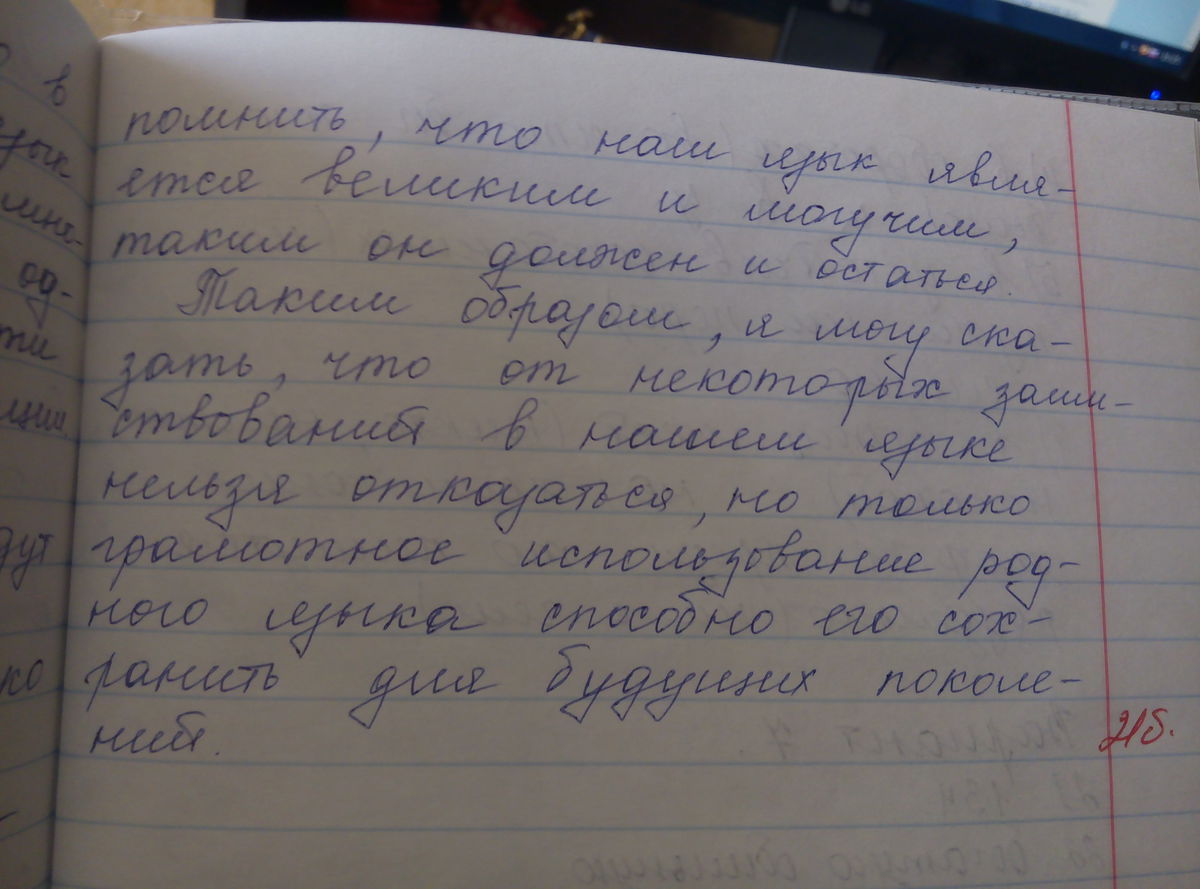 помнить, что наш язык явля-
ется великим и могучим,
таким он должен и остаться.
Таким образом, я могу ска-
зать, что от некоторых заим-
ствований в нашем языке
нельзя отказаться, но только
грамотное использование род-
ного языка способно его сох-
ранить для будущих поколе-
ний.
21б.
LG